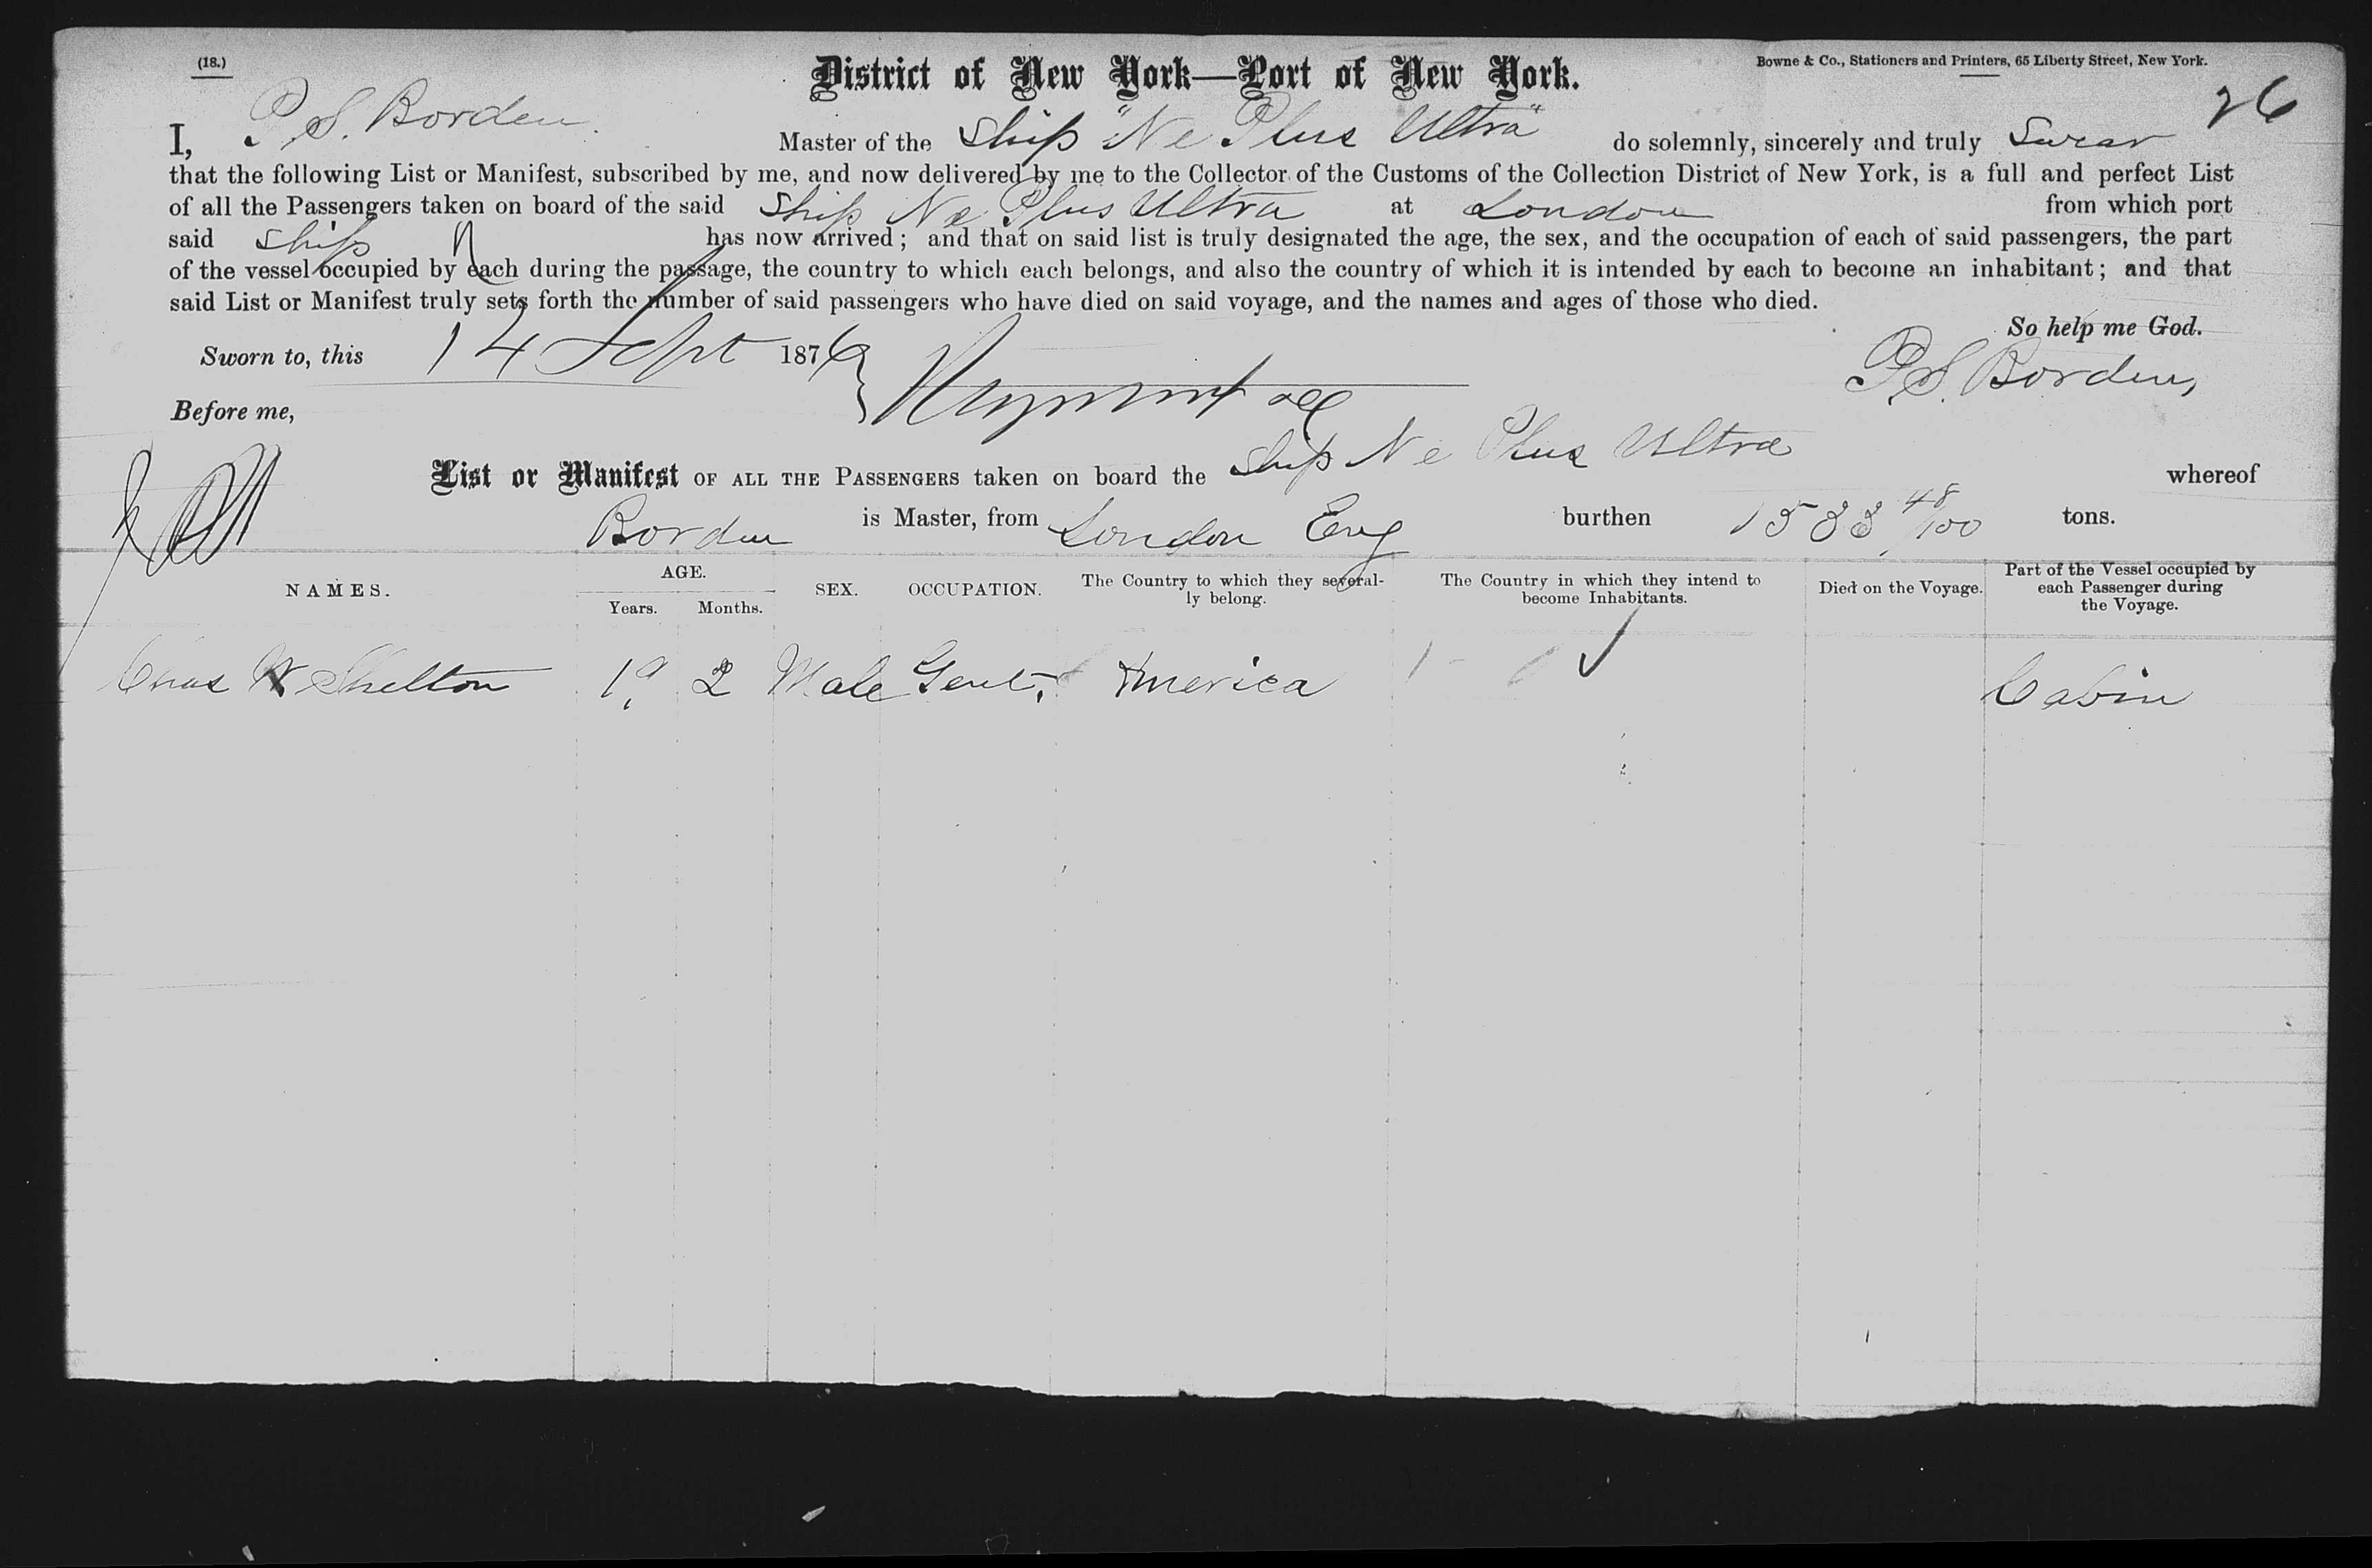 (18.)
District of New York—Port of New York.
Bowne & Co., Stationers and Printers, 65 Liberty Street, New York.
26
I, P. S. Borden. Master of the Ship "Ne Plus Ultra" do solemnly, sincerely and truly Swear
that the following List or Manifest, subscribed by me, and now delivered by me to the Collector of the Customs of the Collection District of New York, is a full and perfect List
of all the Passengers taken on board of the said Ship Ne Plus Ultra at London from which port
said Ship has now arrived; and that on said list is truly designated the age, the sex, and the occupation of each of said passengers, the part
of the vessel occupied by each during the passage, the country to which each belongs, and also the country of which it is intended by each to become an inhabitant; and that
said List or Manifest truly sets forth the number of said passengers who have died on said voyage, and the names and ages of those who died.
So help me God.
Sworn to, this 14 Sept 1876
P. S. Borden,
Before me,
List or Manifest OF ALL THE PASSENGERS taken on board the Ship Ne Plus Ultra whereof
Borden is Master, from London Eng burthen 1533 48/100 tons.
NAMES. AGE. Years. Months. SEX. OCCUPATION. The Country to which they severally belong. The Country in which they intend to become Inhabitants. Died on the Voyage. Part of the Vessel occupied by each Passenger during the Voyage.
Chas W Shelton 19 2 Male Gent. America Cabin